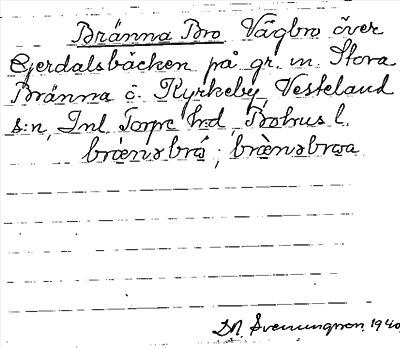 Bränna Bro Vägbro över
Gjerdalsbäcken på gr. m. Stora
Bränna o. Kyrkeby, Vesteland
s:n, Inl Torpe hrd, Bohus l.
brænǝbró ; brænǝbroa
D.A. Svenungson 1940